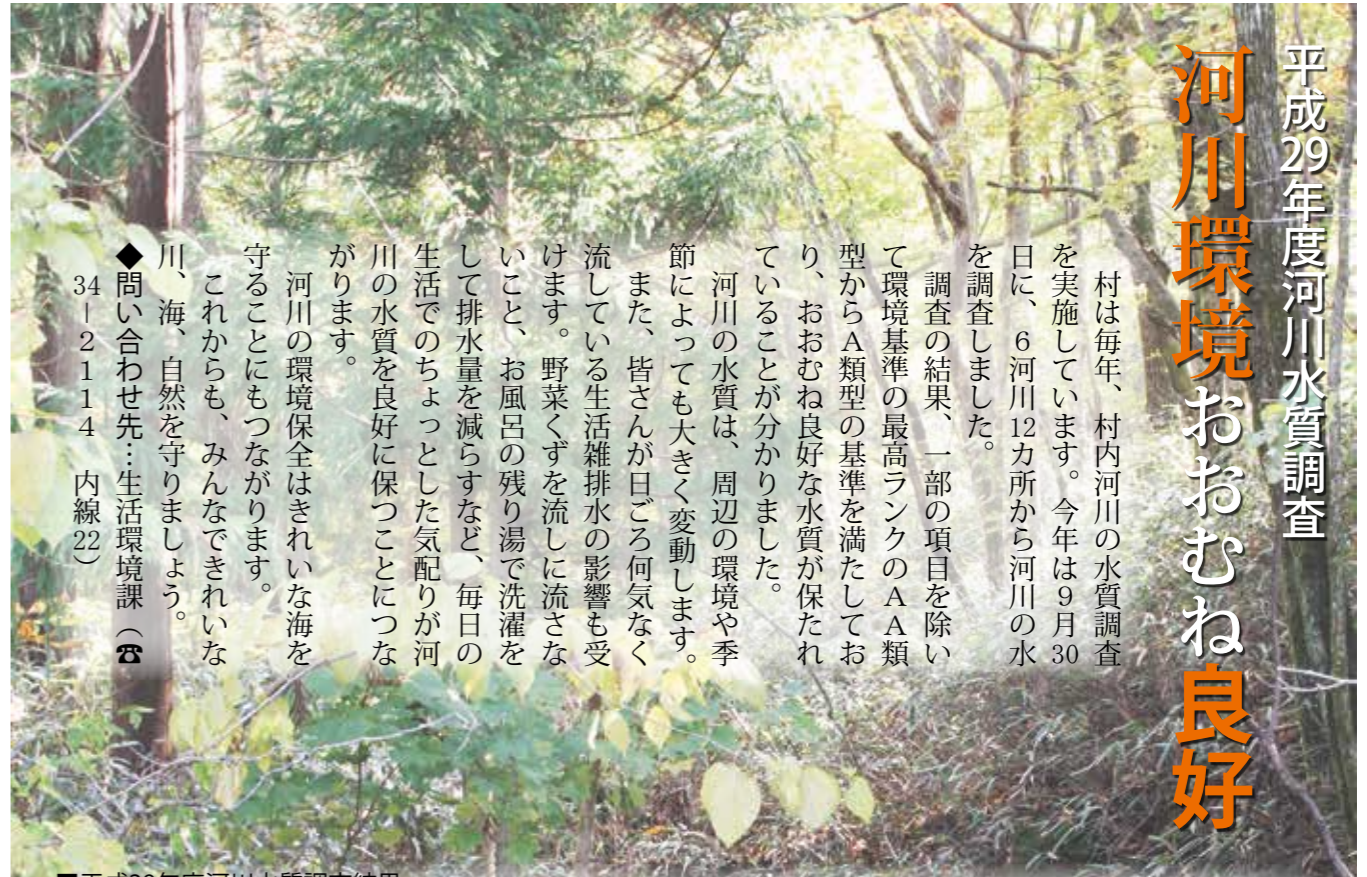 平成29年度河川水質調査
河川環境おおむね良好
　村は毎年、村内河川の水質調査
を実施しています。今年は９月30
日に、６河川12カ所から河川の水
を調査しました。
　調査の結果、一部の項目を除い
て環境基準の最高ランクのＡＡ類
型からＡ類型の基準を満たしてお
り、おおむね良好な水質が保たれ
ていることが分かりました。
　河川の水質は、周辺の環境や季
節によっても大きく変動します。
　また、皆さんが日ごろ何気なく
流している生活雑排水の影響も受
けます。野菜くずを流しに流さな
いこと、お風呂の残り湯で洗濯を
して排水量を減らすなど、毎日の
生活でのちょっとした気配りが河
川の水質を良好に保つことにつな
がります。
　河川の環境保全はきれいな海を
守ることにもつながります。
　これからも、みんなできれいな
川、海、自然を守りましょう。
◆問い合わせ先…生活環境課（☎
34－2114　内線22）